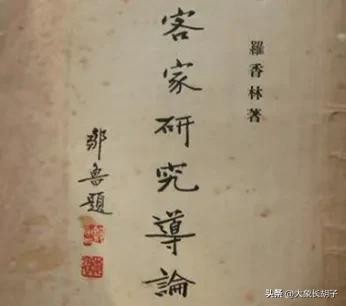 羅香林著
客家研究導論
鄒魯題
头条 @大象长胡子